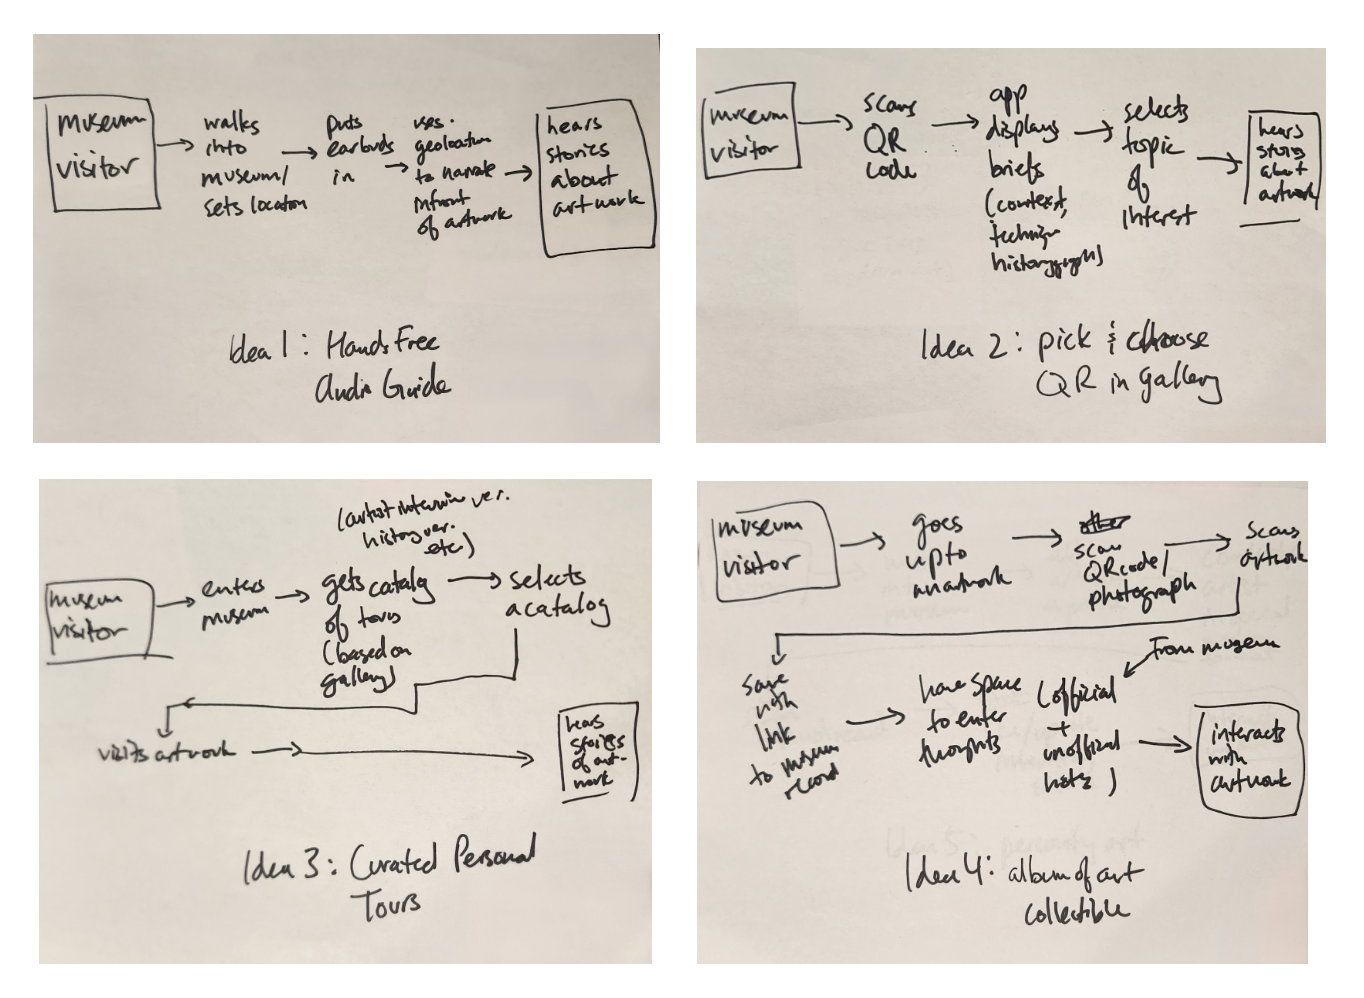 museum
visitor
walks
into
museum/
sets location
puts
earbuds
in
uses
geolocation
to narrate
infront
of artwork
hears
stories
about
artwork
Idea 1: Hands Free
Audio Guide
museum
visitor
scans
QR
code
app
displays
briefs
(context,
technique
selects
topic
of
interest
hears
stories
about
artwork
Idea 2: pick & choose
QR in gallery
(artist interview ver.
history ver.
etc)
museum
visitor
enters
museum
gets catalog
of tours
(based on
gallery)
selects
a catalog
visits artwork
hears
stories
of art-
work
Idea 3: Curated Personal
Tours
museum
visitor
goes
up to
an artwork
scan
QR code/
photograph
scans
artwork
save
with
link
to museum
record
have space
to enter
thoughts
from museum
(official
+
unofficial
notes)
interacts
with
artwork
Idea 4: album of art
collectible